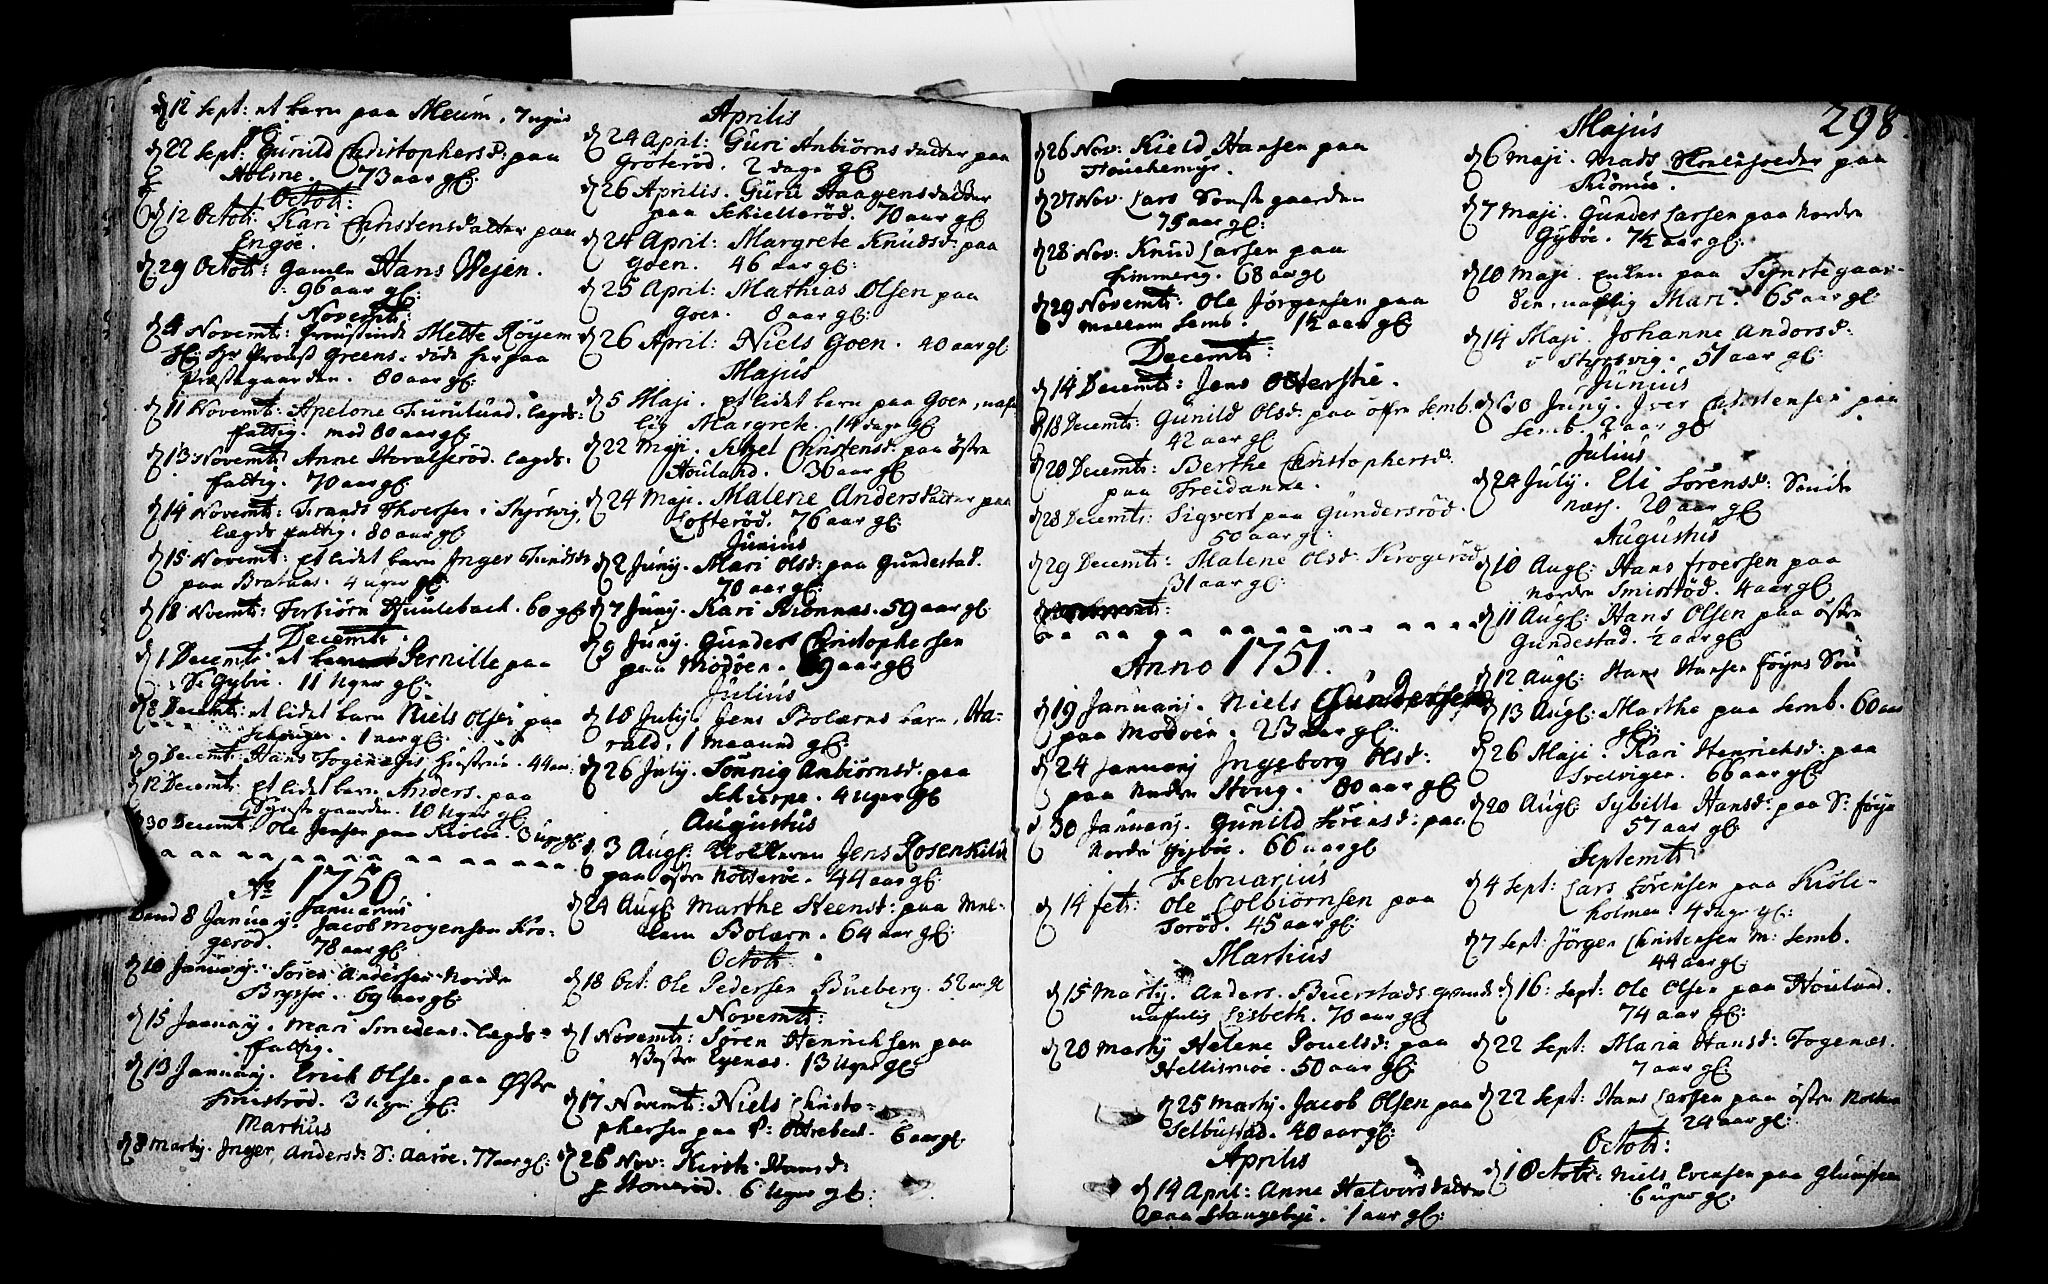 12 Sept: et barn paa Meum, 7 uger
gl:
22 Sept: Gunild Christophersd: paa
Holme. 73 aar gl:
Octobr:
12 Octobr: Kari Christensdatter paa
Engöe.
29 Octobr: gamle Hans Wejen.
96 aar gl:
Novembr:
4 Novembr: Mette Röyem
Sl: Hr Proust Greens. döde her paa
Præstegaarden. 80 aar gl:
11 Novembr: Apelone Furulund. lægds-
fattig. mod 80 aar gl:
13 Novembr: Anne lægds-
fattig. 70 aar gl:
14 Novembr: Iversen i
lægds fattig. 80 aar gl:
15 Novembr: et lidet barn Inger
paa Bratnas. 4 uger gl:
18 Novembr: Torbiörn Huulebach. 60 gl:
Decembr:
1 Decembr: et Pernille paa
S: Gyböe. 11 Uger gl:
8 Decembr: et lidet barn Niels Olsen paa
1 aar gl:
9 Decembr: Hans Fogenæs Hustrue. 44 aar
12 Decembr: et lidet barn Anders. paa
Synste gaarden. 10 Uger gl:
30 Decembr: Ole Jensen paa 3 uger gl:
Ao 1750.
Januarius
Dend 8 Januarij. Jacob Mogensen Kro-
geröd. 78 aar gl:
10 Januarij. Sören Andersen Nordre
Bryssöe. 69 aar gl:
15 Januarij. Mari Smedens. lægds-
fattig.
13 Januarij. Erich Olse. paa Östre
Smiströd. 3 Uger gl:
Martius
8 Martij. Inger Andersd: S: Aaröe. 77 aar gl:
Aprilis
24 April: Guri Anbiörns datter paa
Groteröd. 2 dage gl:
26 Aprilis. Guru Haagensdatter
paa Schielleröd. 70 aar gl:
24 April: Margrete Knudsd: paa
Goen. 46 aar gl:
25 April: Mathias Olsen paa
Goen. 8 aar gl:
26 April: Niels Goen. 40 aar gl:
Majus
5 Maji. et lidet barn paa Goen, naf-
lig Margrete. 14 dage gl:
22 Maji. Christensd: paa östre
Houland. 30 aar gl:
24 Maji. Malene Andersdatter paa
Lofteröd. 76 aar gl:
Junius
2 Junij. Mari Olsd: paa Gundestad.
70 aar gl:
7 Junij. Kari Kionnas. 59 aar gl:
9 Junij. Gunder Christophersen
paa Modöen. 9 aar gl:
Julius
18 Julij. Jens Bolærns barn, Ha-
rald, 1 maaned gl:
26 Julij. Sönnig Anbiörnsd: paa
4 Uger gl:
Augustus
3 Augl: Jens Rosenkilde
paa östre Nötteröe. 44 aar gl:
24 Augl: Marthe Steensd: paa Mel-
lem Bolærn. 64 aar gl:
Octobr:
18 Oct: Ole Pedersen Bueberg. 52 aar gl:
Novembr:
1 Novembr: Sören Henrichsen paa
Vestre Egenæs. 13 Uger gl:
17 Novembr: Niels Christo-
phersen paa S: Otterbech. 6 aar gl:
26 Nov: Kirsti Hansd:
p Stoveröd. 6 Uger gl:
26 Nov: Kield Hansen paa
27 Nov: Lars Sönste gaarden
75 aar gl:
28 Nov: Knud Larsen paa
68 aar gl:
29 Novembr: Ole Jörgensen paa
mellem Semb. 1½ aar gl:
Decembr:
14 Decembr: Jens Otterstie.
18 Decembr: Gunild Olsd: paa öfre Semb.
42 aar gl:
20 Decembr: Berthe Christophersd:
paa Treidanne.
28 Decembr: Sigvert paa Gunderöd.
50 aar gl:
29 Decembr: Malene Olsd: Krogeröd.
31 aar gl:
Anno 1751.
19 Januarij. Niels Gundersen
paa Modöen. 23 aar gl:
24 Januarij Ingeborg Olsd:
paa Nedre 80 aar gl:
30 Januarij. Gunild Sörensd: paa
Nordre Gyböe. 66 aar gl:
Februarius
14 Febr: Ole Colbiörnsen paa
Toröd. 45 aar gl:
Martius
15 Martij. Anders
nafnlig Lisbeth. 70 aar gl:
20 Martij Helene Pouelsd: paa
Hellismöe. 50 aar gl:
25 Martij. Jacob Olsen paa
Selbustad. 40 aar gl:
Aprilis
14 April: Anne Halvorsdatter
paa Stangebye. 1 aar gl:
298.
Majus
6 Maji. Mads paa
7 Maji. Gunder Larsen paa Nordre
Gyböe. 7½ aar gl:
10 Maji. Enken paa Synstegaar-
den, nafnlig Mari. 65 aar gl:
14 Maji. Johanne Andorsd:
51 aar gl:
Junius
Junij. Iver Christensen paa
Semb. 2 aar gl:
Julius
24 Julij. Eli Sörensd: Sönde
næss. 20 aar gl:
Augustus
10 Augl: Hans Iversen paa
Nordre Smiströd. 4 aar gl:
11 Augl: Hans Olsen paa östre
Gundestad. ½ aar gl:
12 Augl: Hans Hansen Föyns Sön
13 Augl: Marthe paa Semb. 60 aar
gl:
26 Maji. Kari Henrichsd: paa
Svelvigen. 66 aar gl:
20 Augl: Sybille Hansd: paa S: Föyn
57 aar gl:
Septembr:
4 Sept: Lars Sörensen paa Kiöle-
holmen. 4 dage gl:
7 Sept: Jörgen Christensen M: Semb.
44 aar gl:
16: Sept: Ole Olsen paa Houland.
74 aar gl:
22 Sept: Maria Hansd: Fogenæs.
7 aar gl:
22 Sept: Hans Larsen paa östre
24 aar gl:
Octobr:
1 Octobr: Niels Evensen paa
6 uger gl: